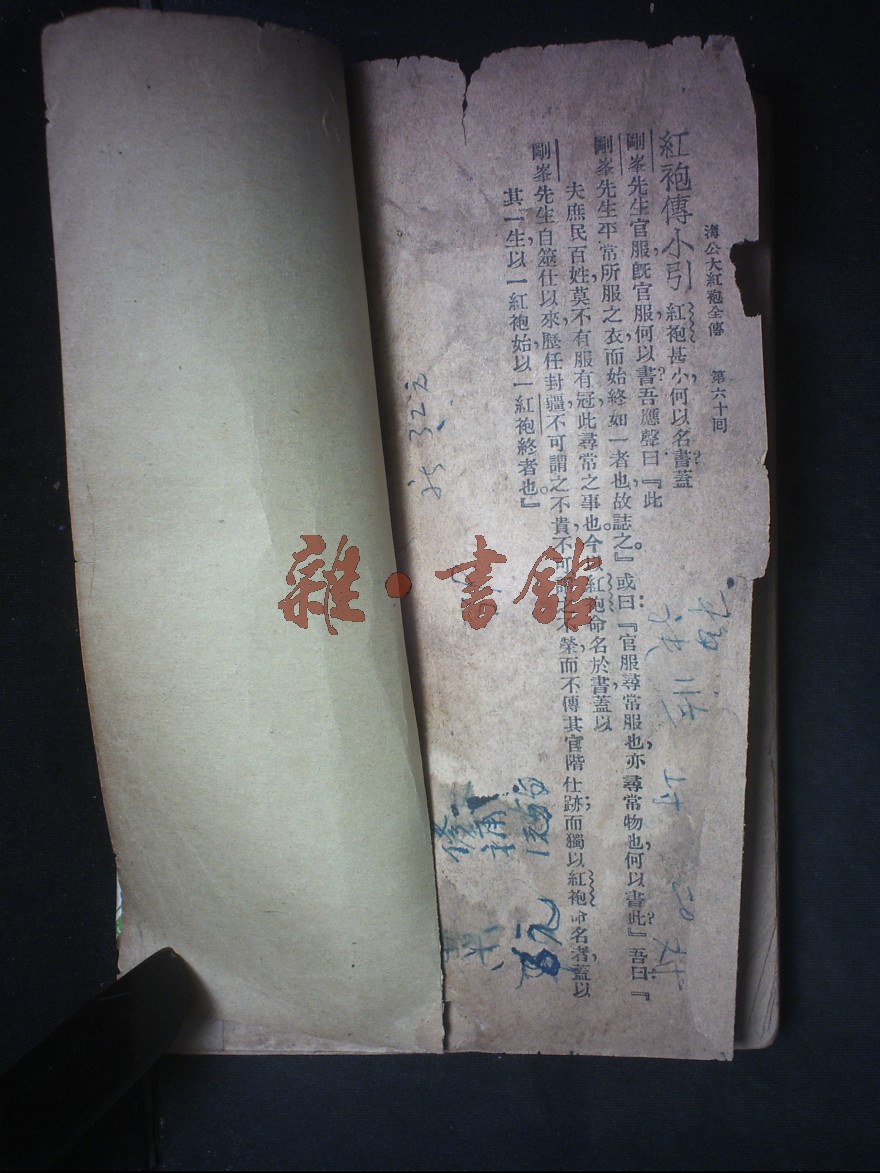 海公大紅袍全傳 第六十回
紅袍傳小引 紅袍甚小,何以名書?蓋
剛峯先生官服,旣官服何以書?吾應聲曰,『此
剛峯先生平常所服之衣而始終如一者也。故誌之。』或曰:『官服尋常服也,亦尋常物也,何以書此?』吾曰:『
夫庶民百姓,莫不有服有冠,此尋常之事也。今以紅袍命名於書,蓋以
剛峯先生自筮仕以來,歷任封疆,不可謂之不貴,不可謂之不榮,而不傳其官階仕跡;而獨以紅袍命名者,蓋以
其一生,以一紅袍始,以一紅袍終者也。』
32元
修補
雜·書館